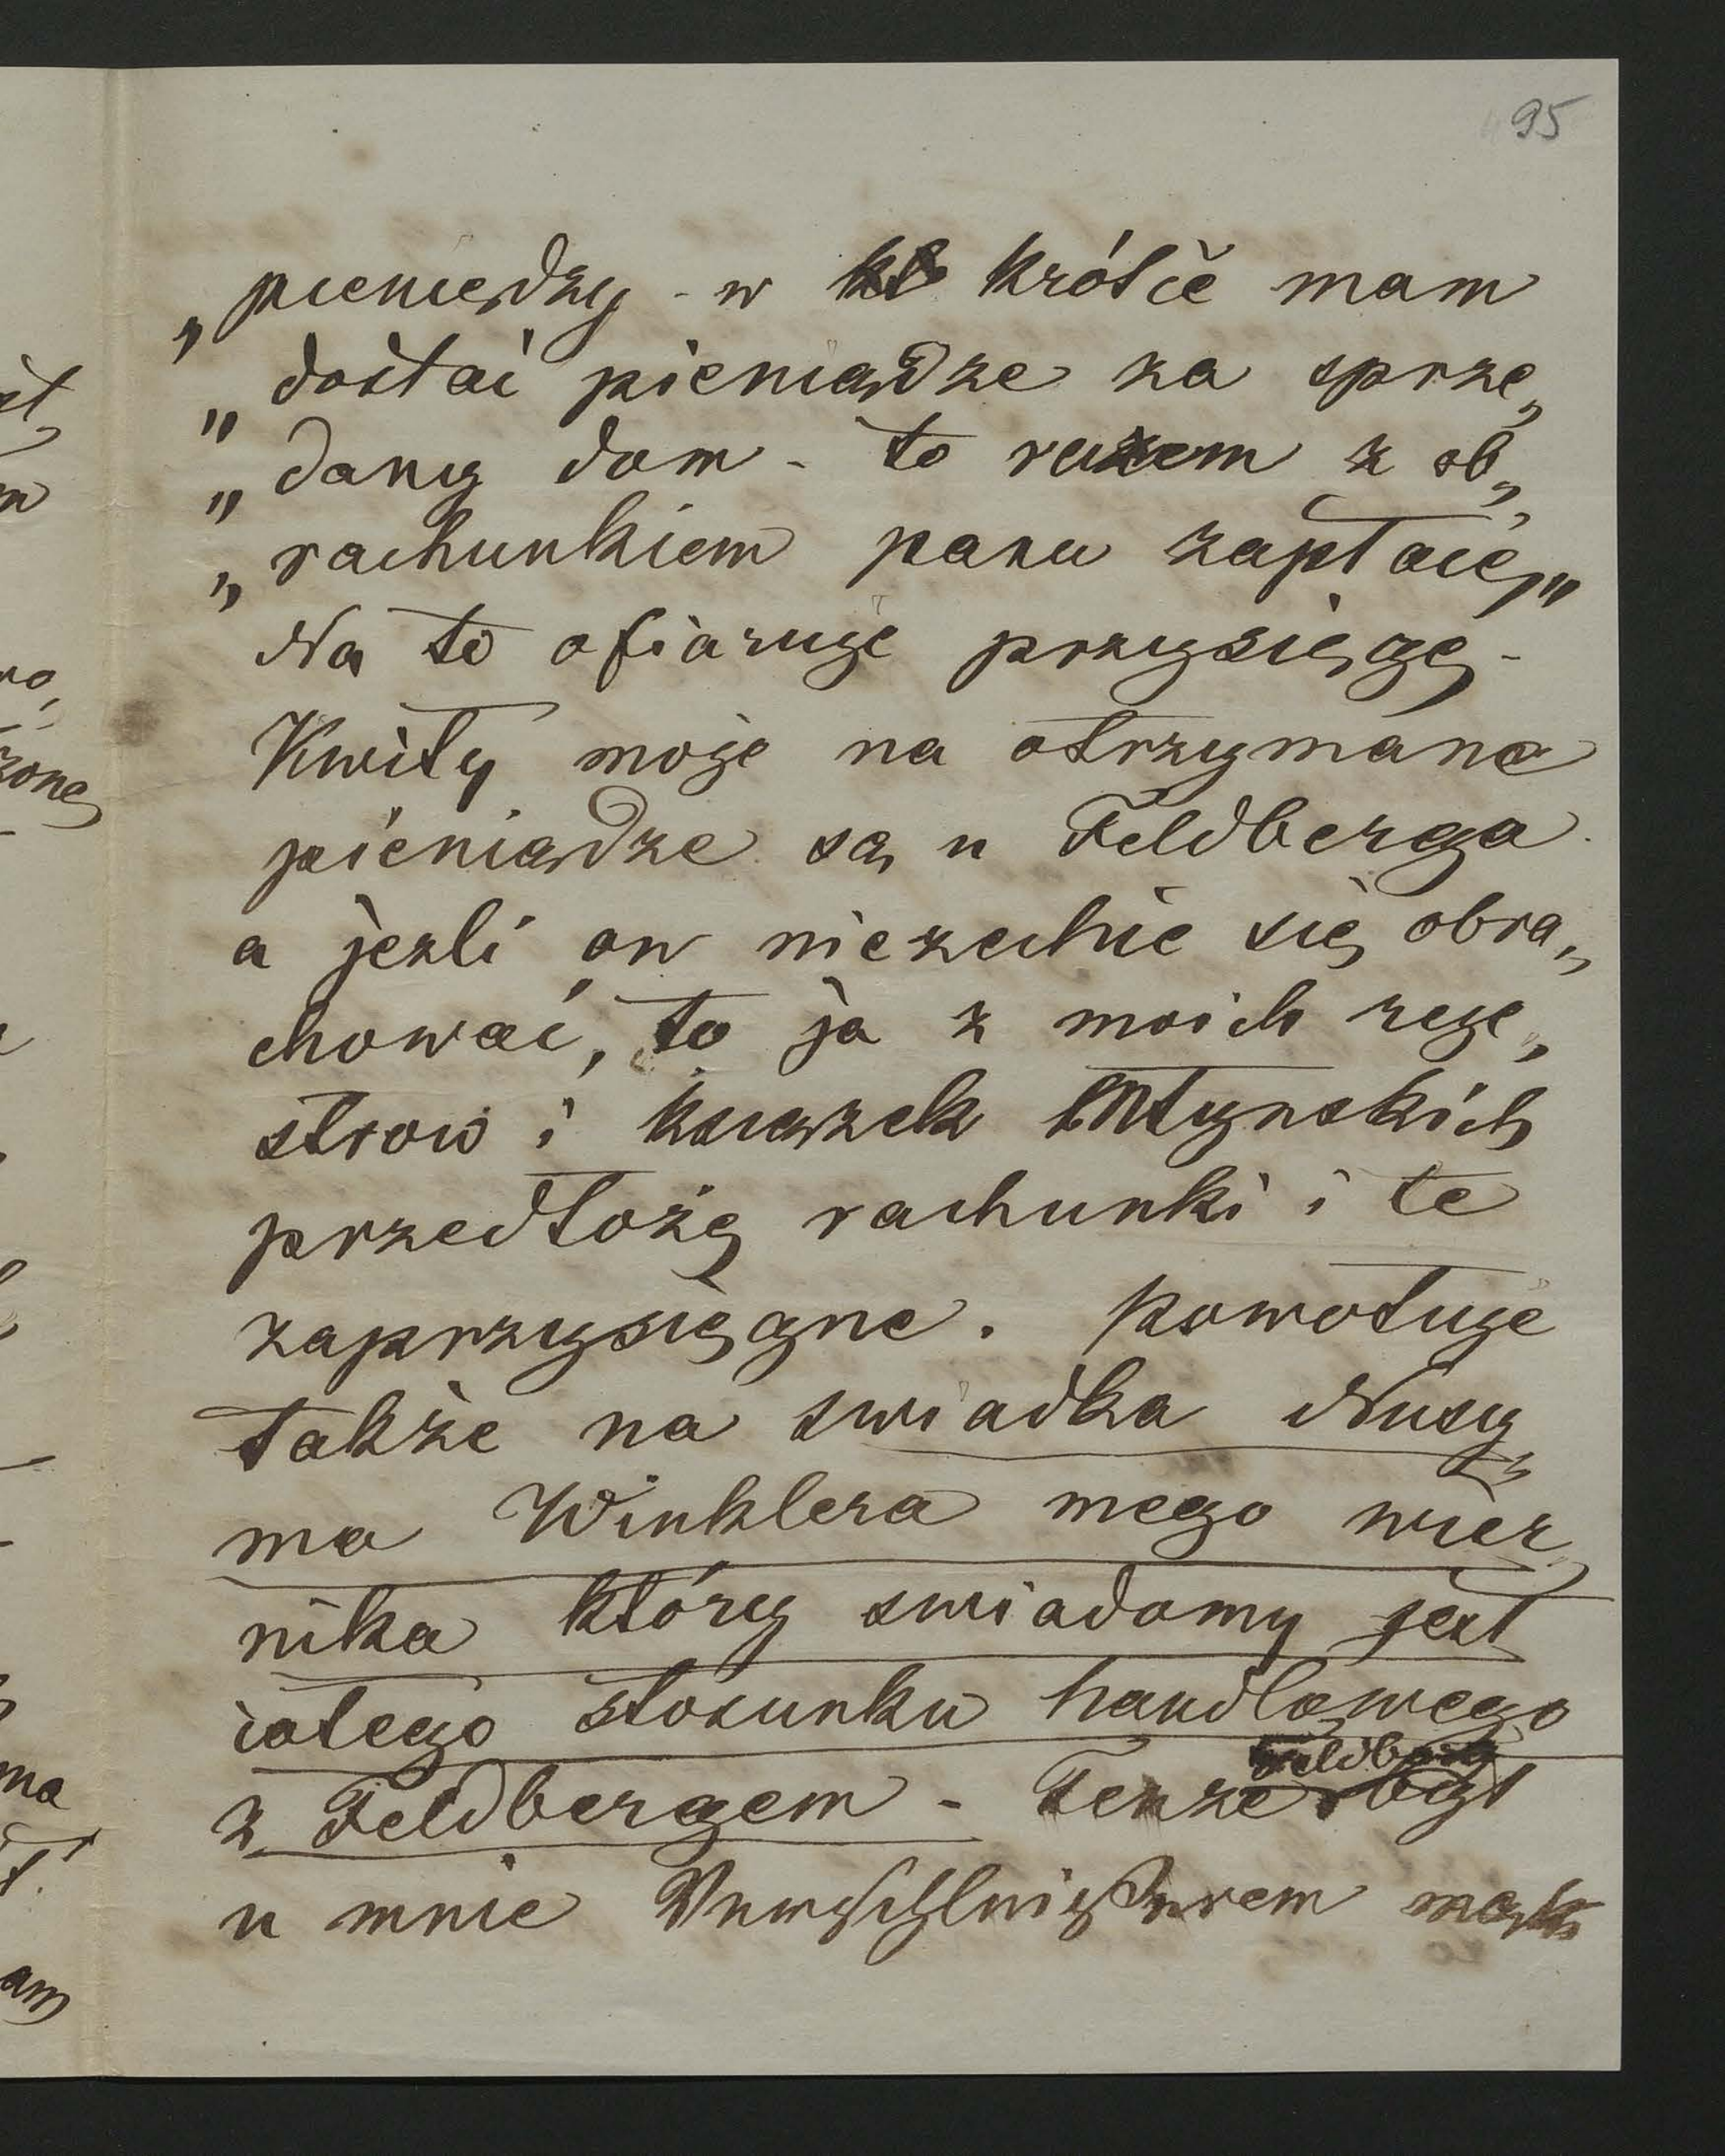 95
„pieniędzy - w krótce mam
„dostać pieniądze za sprze„
„dany dom - to razem z ob„
„rachunkiem panu zapłacę„
Na to ofiaruję przysięgę -
Kwity moje na otrzymane
pieniądze są u Feldberga
a jezli on niezechce się obra„
chować, to ja z moich reje„
strow i książek młynskich
przedłożę rachunki i te
zaprzysięgne. Powołuje
także na swiadka Nusy„
ma Winklera mego wier„
nika który swiadomy jest
całego stosunku handlowego
z Feldbergem - Tenże Feldberg był
u mnie mąk